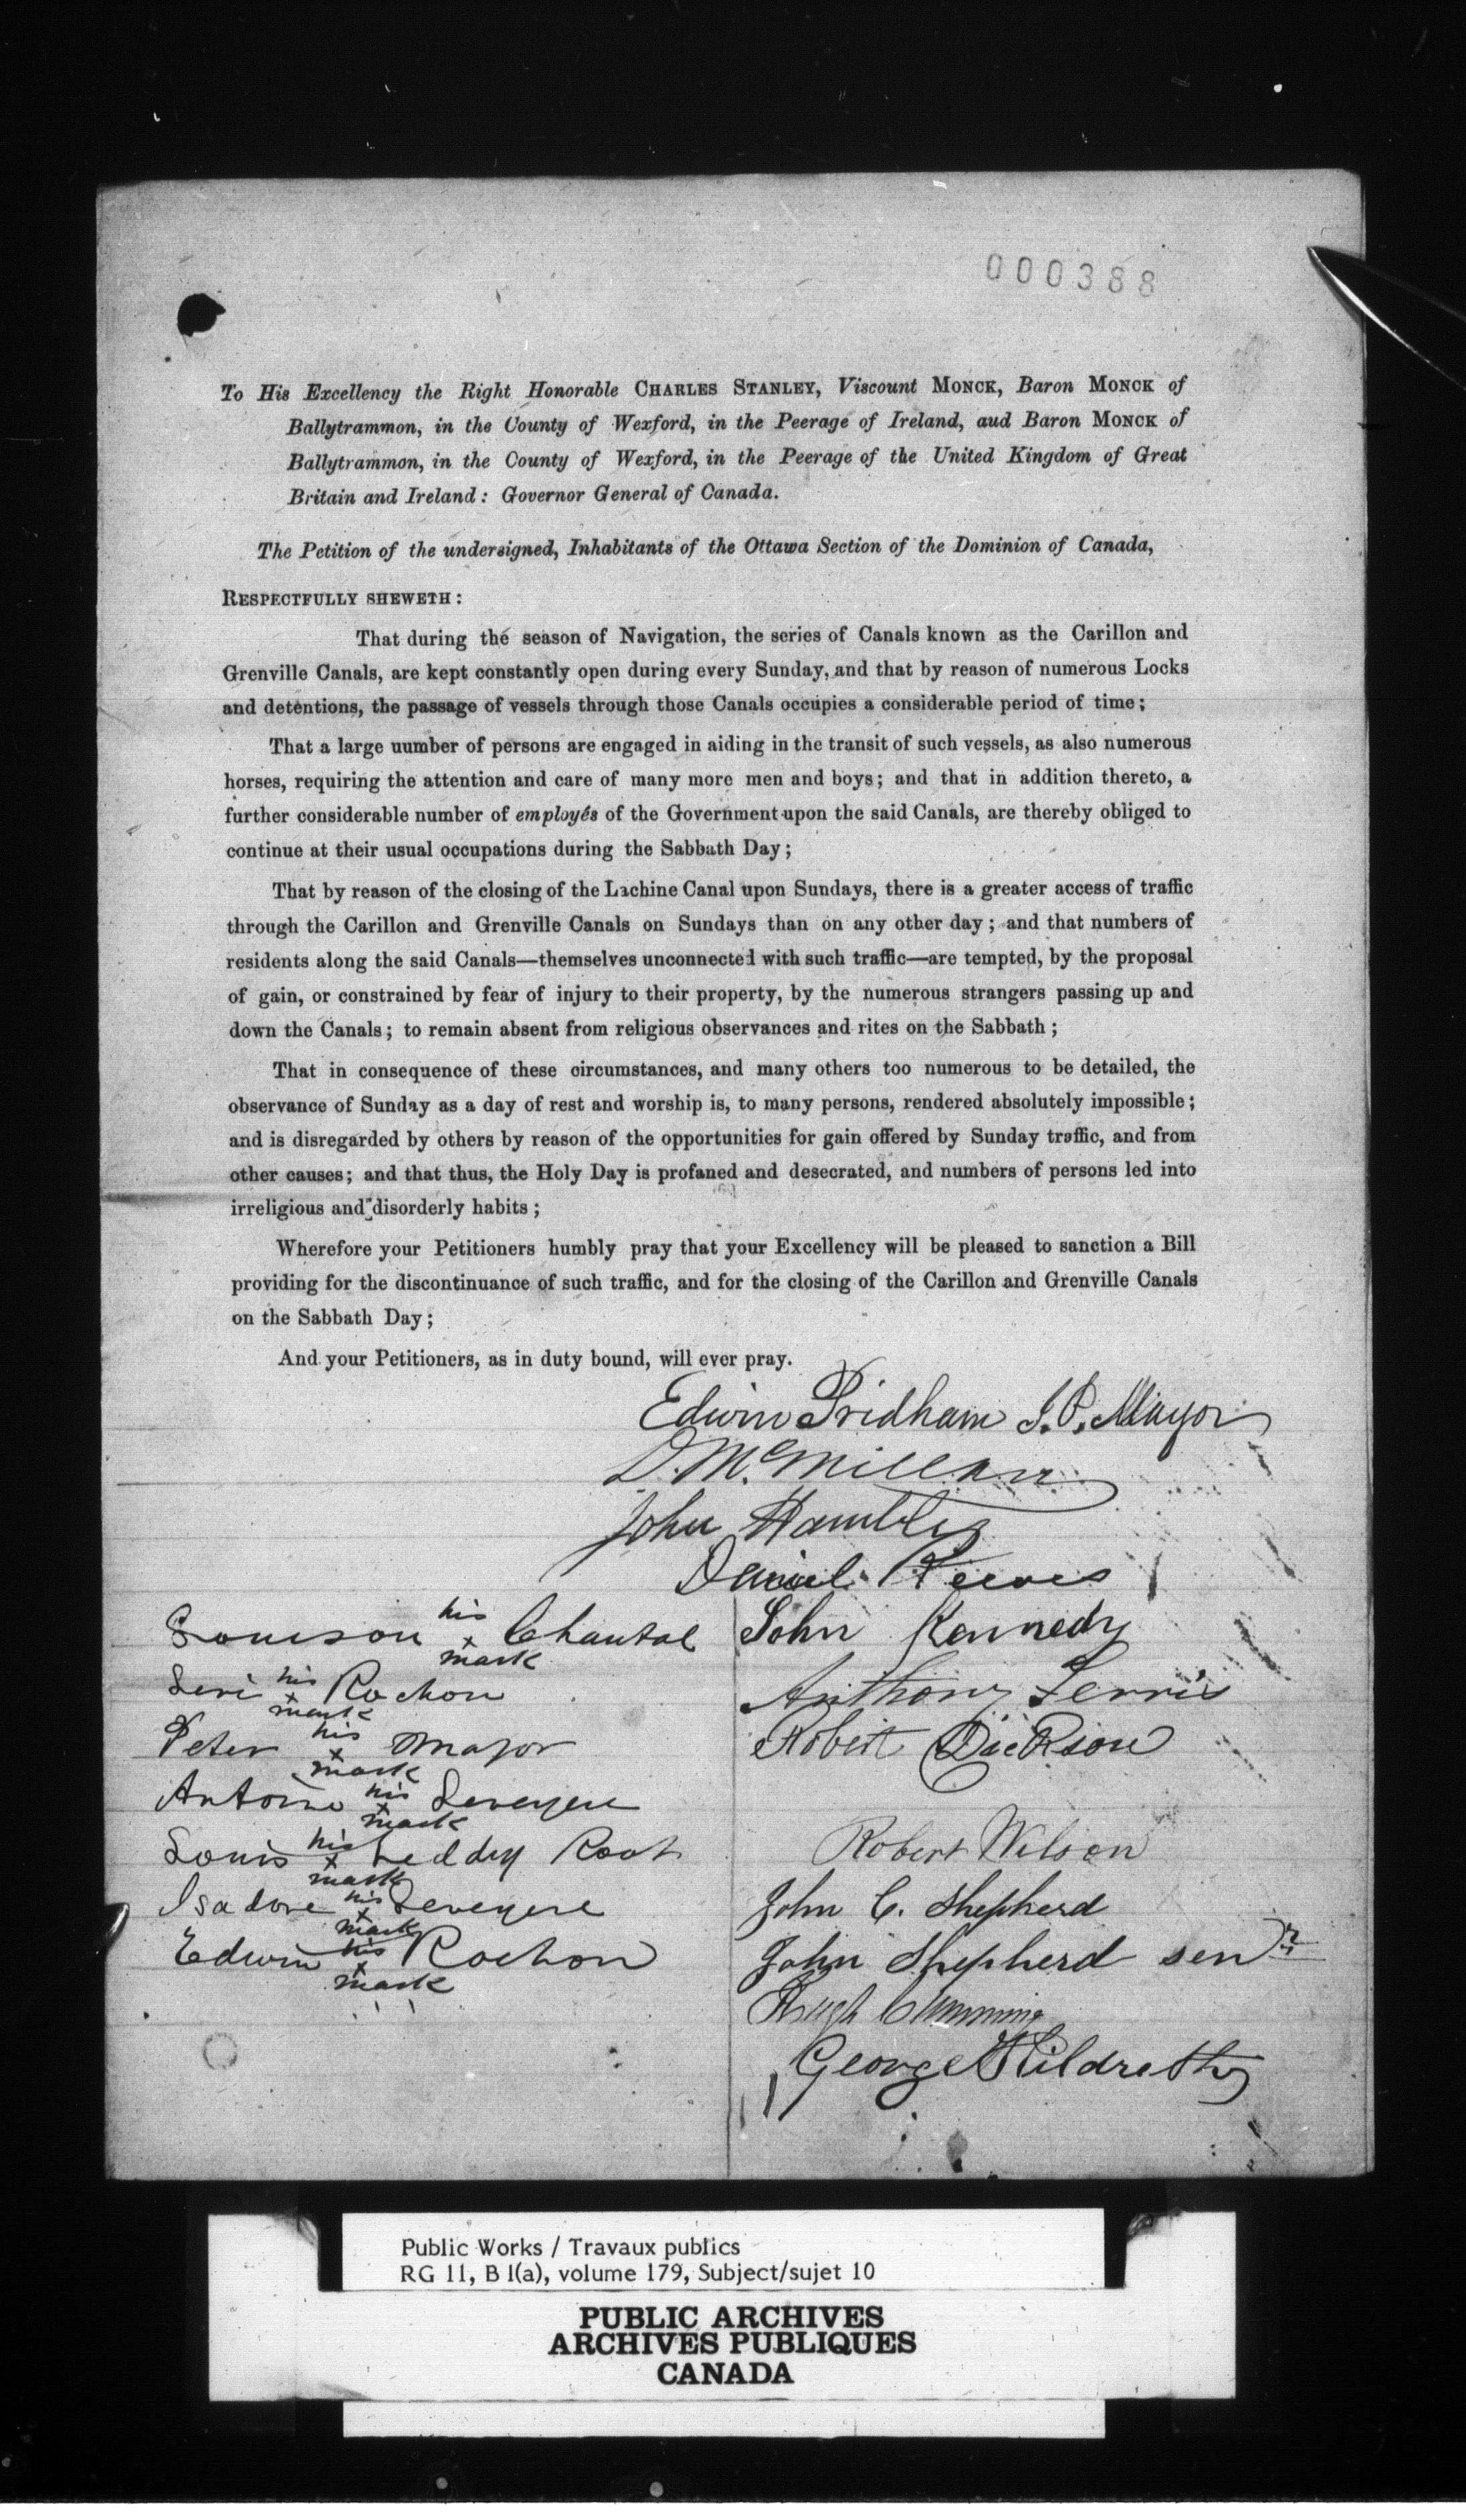 000388
To His Excellency the Right Honorable CHARLES STANLEY, Viscount MONCK, Baron MONCK of
Ballytrammon, in the County of Wexford, in the Peerage of Ireland, aud Baron MONCK of
Ballytrammon, in the County of Wexford, in the Peerage of the United Kingdom of Great
Britain and Ireland: Governor General of Canada.
The Petition of the undersigned, Inhabitants of the Ottawa Section of the Dominion of Canada,
RESPECTFULLY SHEWETH:
That during the season of Navigation, the series of Canals known as the Carillon and
Grenville Canals, are kept constantly open during every Sunday, and that by reason of numerous Locks
and detentions, the passage of vessels through those Canals occupies a considerable period of time;
That a large uumber of persons are engaged in aiding in the transit of such vessels, as also numerous
horses, requiring the attention and care of many more men and boys; and that in addition thereto, a
further considerable number of employés of the Government upon the said Canals, are thereby obliged to
continue at their usual occupations during the Sabbath Day;
That by reason of the closing of the Lachine Canal upon Sundays, there is a greater access of traffic
through the Carillon and Grenville Canals on Sundays than on any other day; and that numbers of
residents along the said Canals—themselves unconnected with such traffic—are tempted, by the proposal
of gain, or constrained by fear of injury to their property, by the numerous strangers passing up and
down the Canals; to remain absent from religious observances and rites on the Sabbath;
That in consequence of these circumstances, and many others too numerous to be detailed, the
observance of Sunday as a day of rest and worship is, to many persons, rendered absolutely impossible;
and is disregarded by others by reason of the opportunities for gain offered by Sunday traffic, and from
other causes; and that thus, the Holy Day is profaned and desecrated, and numbers of persons led into
irreligious and disorderly habits;
Wherefore your Petitioners humbly pray that your Excellency will be pleased to sanction a Bill
providing for the discontinuance of such traffic, and for the closing of the Carillon and Grenville Canals
on the Sabbath Day;
And your Petitioners, as in duty bound, will ever pray.
Edwin Pridham J.P. Mayor
D. McMillan
John Hambly
Daniel Reeves
Louison his x mark Chantal
Levi his x mark Rochon
Peter his x mark Major
Antoine his x mark
Louis his x mark
Isadore his x mark
Edwin his x mark Rochon
John Kennedy
Anthony Ferris
Robert Dickson
Robert Wilson
John C. Shepherd
John Shepherd senr
Hugh Cumming
George Hildreth
Public Works / Travaux publics
RG 11, B 1(a), volume 179, Subject/sujet 10
PUBLIC ARCHIVES
ARCHIVES PUBLIQUES
CANADA